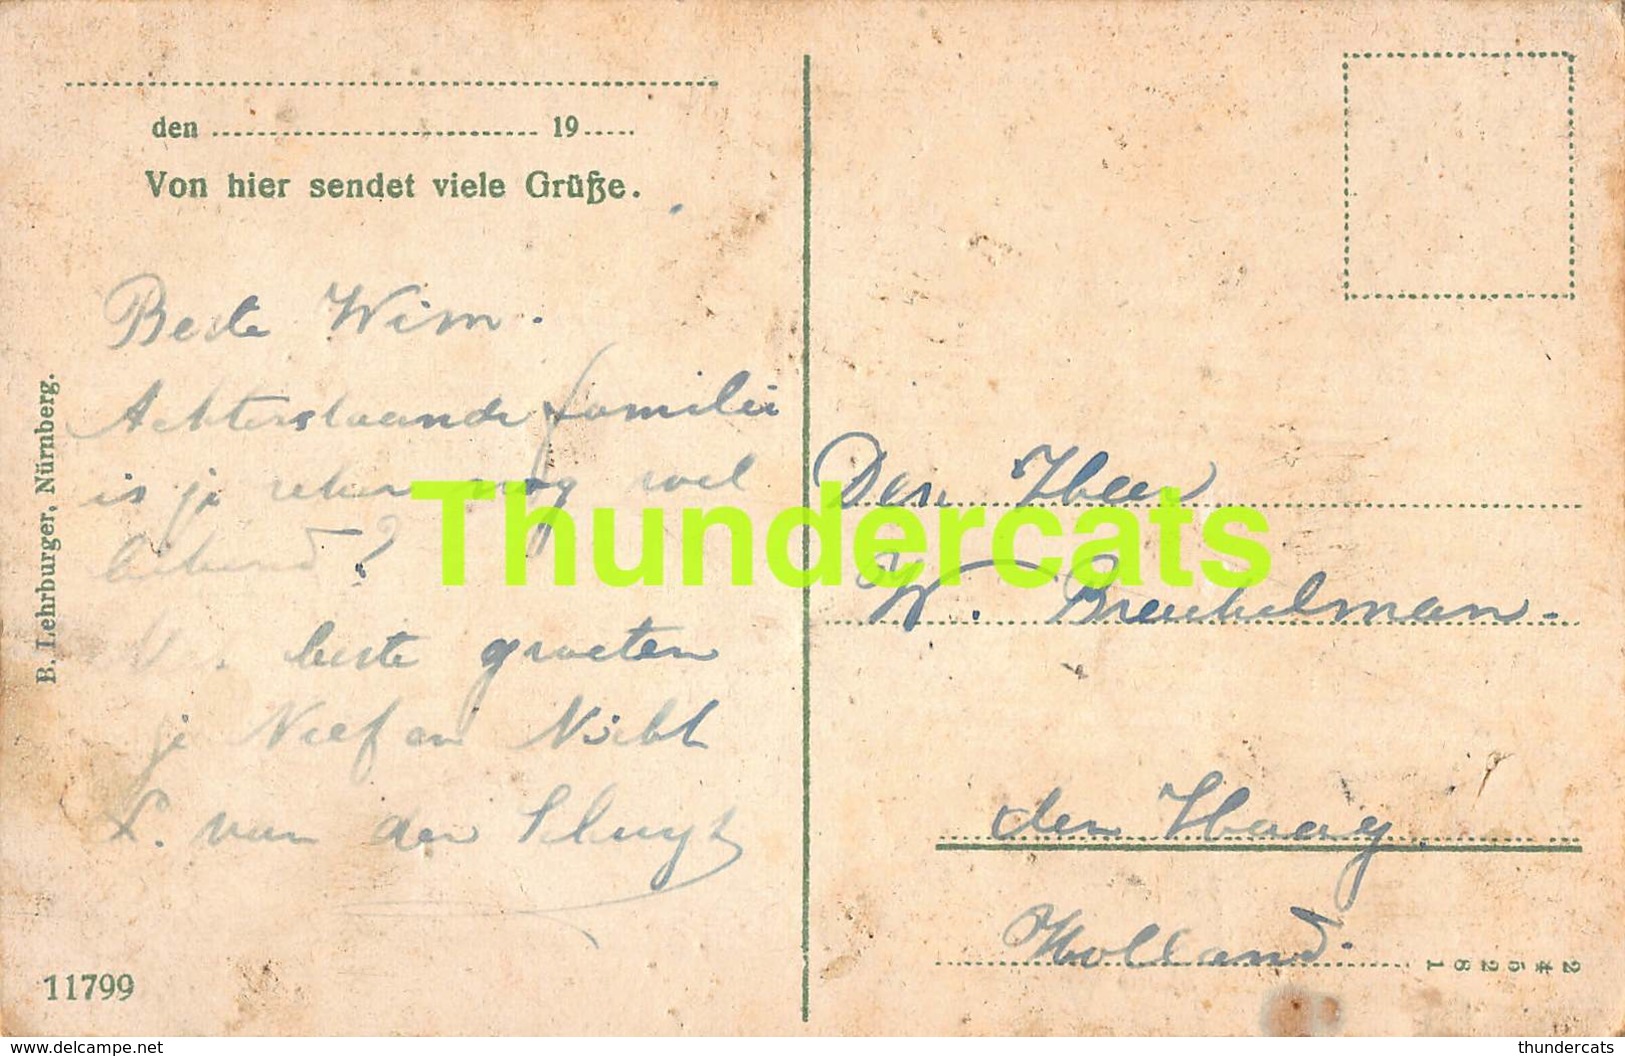 den ........................... 19.....
Von hier sendet viele Grüße.
Beste Wim.
Achterstaande familie
is je zeker nog wel
bekend?
beste groeten
je Neef en Nicht
L. van der Sluys
B. Lehrburger, Nürnberg.
11799
Den Heer
W. Breukelman.
den Haag
Holland.
Thundercats
www.delcampe.net
thundercats